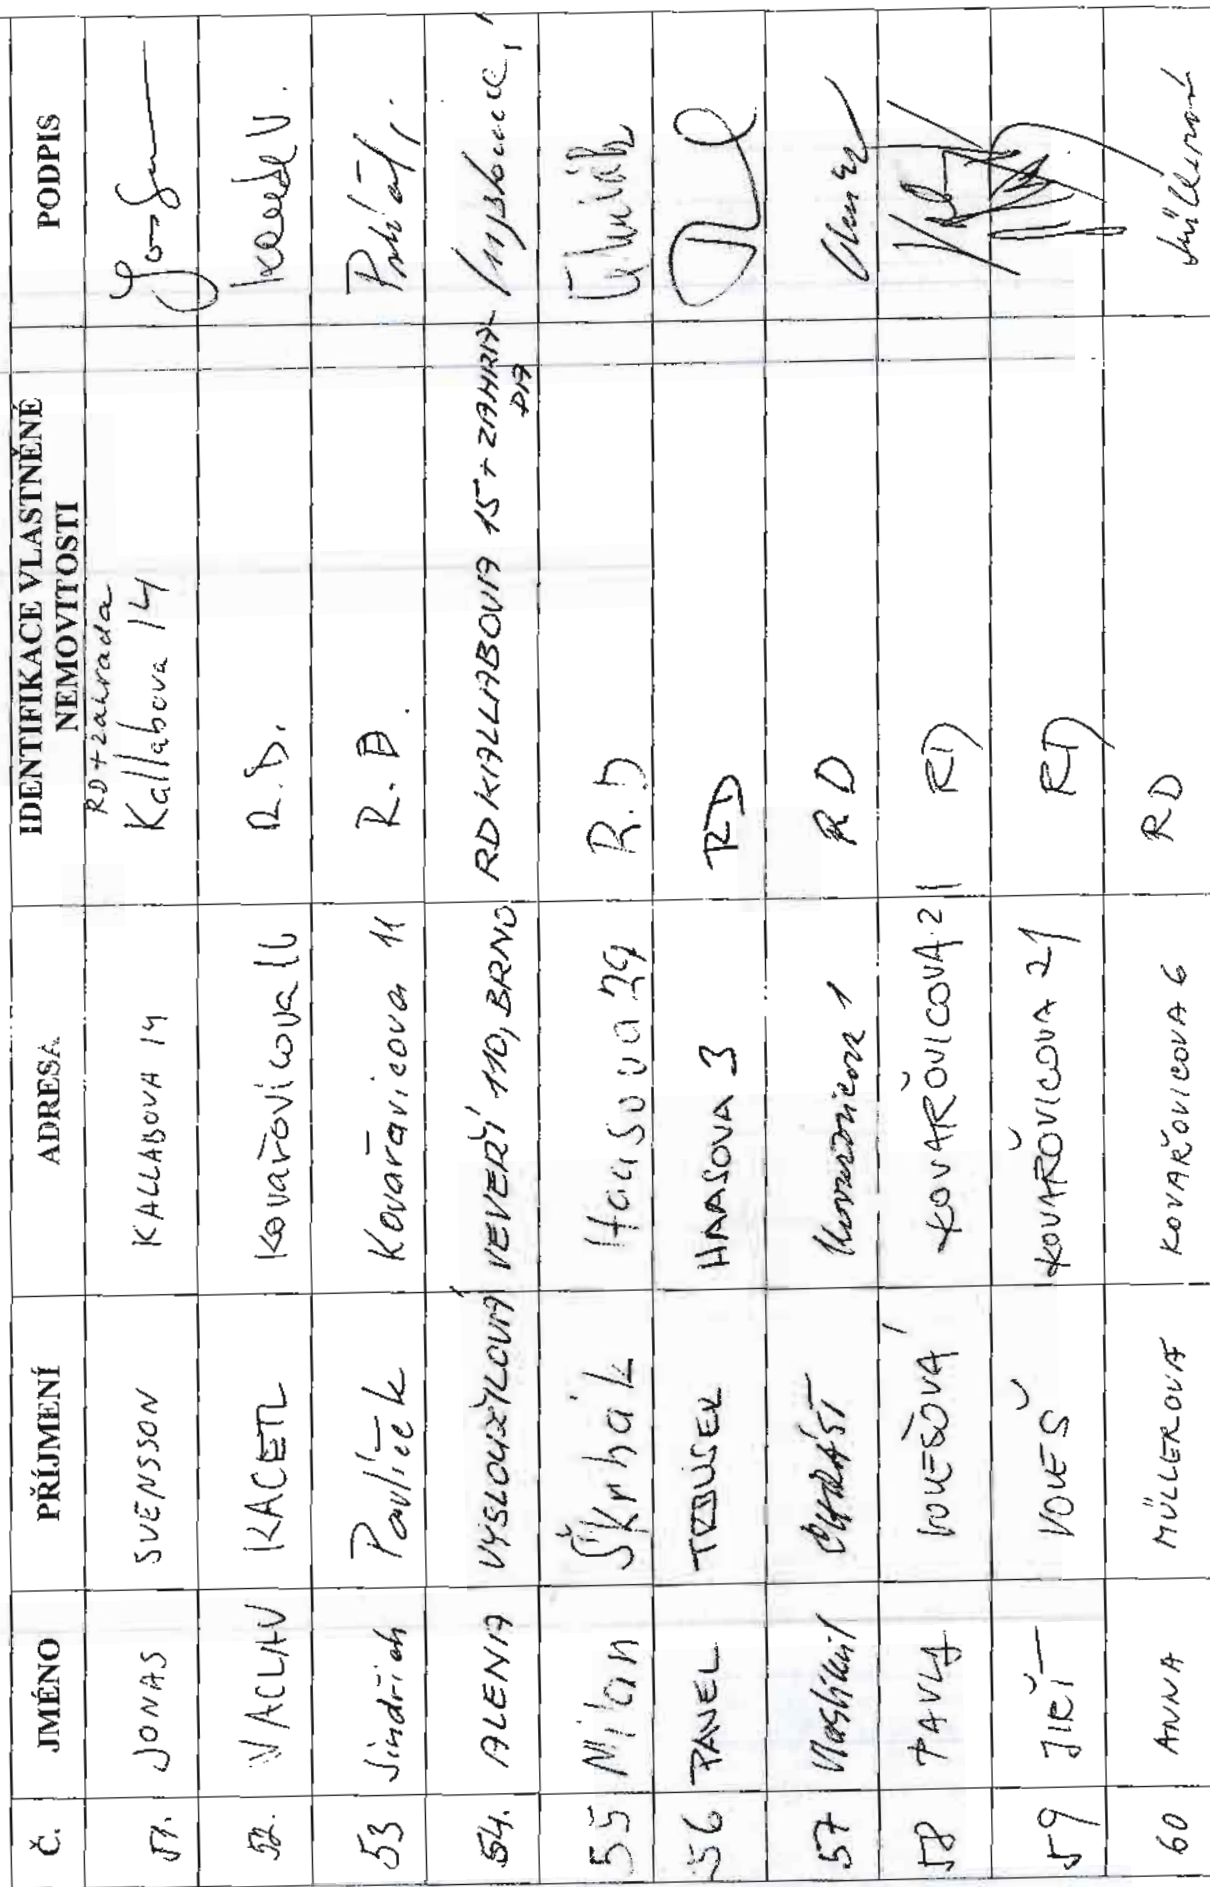 Č. JMÉNO PŘÍJMENÍ ADRESA IDENTIFIKACE VLASTNĚNÉ NEMOVITOSTI PODPIS
51. JONAS SVENSSON KALLABOVA 14 RD + zahrada Kallabova 14
52. VACLAV KACETL Kovařovicova 16 R.D.
53 Jindřich Pavlíček Kovařovicova 11 R.D.
54. ALENA VÝSLOUŽILOVÁ VEVEŘÍ 110, BRNO RD KALLABOVA 15 + ZAHRADA
55 Milan Škrhák Haasova 29 R.D
56 PAVEL TRBUŠEK HAASOVA 3 RD
57 Kovařovicova 1 RD
58 PAVLA VOKEŠOVÁ KOVAŘOVICOVA 21 RD
59 JIŘÍ VOKEŠ KOVAŘOVICOVA 21 RD
60 ANNA MÜLLEROVÁ KOVAŘOVICOVA 6 RD Müllerová